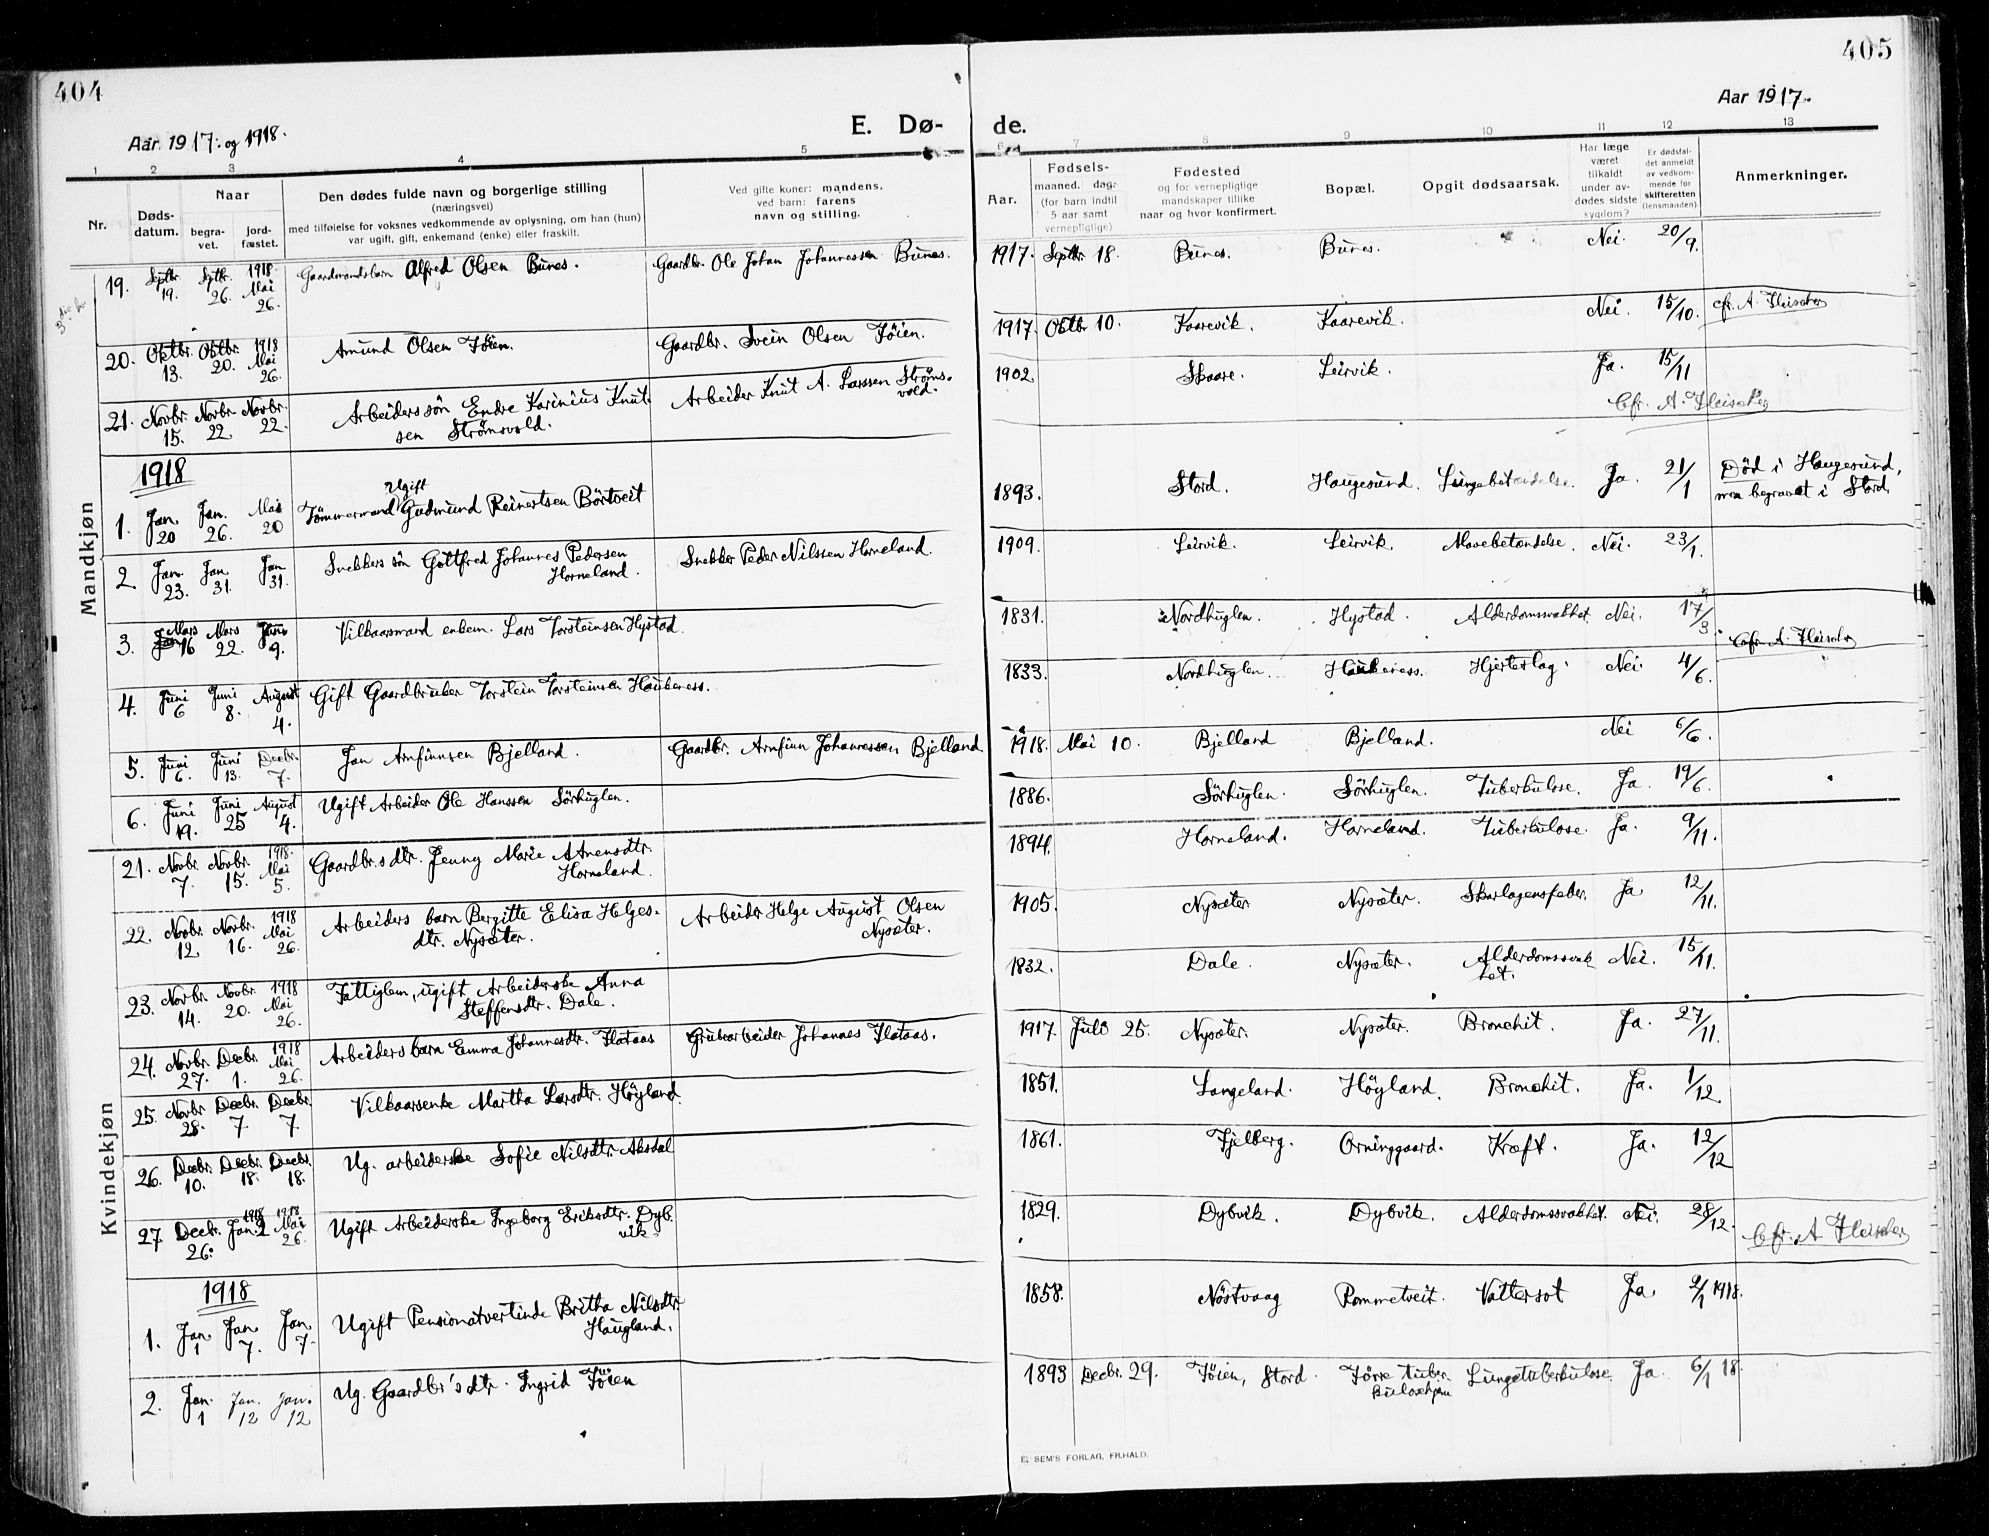 404
Aar 1917. og 1918.
E. Dø-
1 2 3 4 5
Nr.
Døds-
datum.
Naar
begra-
vet.
jord-
fæstet.
Den dødes fulde navn og borgerlige stilling
(næringsvei)
med tilføielse for voksnes vedkommende av oplysning, om han (hun)
var ugift, gift, enkemand (enke) eller fraskilt.
Ved gifte koner: mandens,
ved barn: farens
navn og stilling.
Mandkjøn
19. Septbr. 19. Septbr. 26. 1918 Mai 26. Gaardmandsbarn Alfred Olsen Bunes. Gaardbr. Ole Johan Johannessen Bunes.
20. Oktbr. 13. Oktbr. 20. 1918 Mai 26. Amund Olsen Tøien. Gaardbr. Svein Olsen Tøien.
21. Novbr. 15. Novbr. 22. Novbr. 22. Arbeiderssön Endre Karinius Knut-
sen Strømsvold. Arbeider Knut A. Larssen Strøms-
vold.
1918
1. Jan. 20 Jan. 26. Mai 20 Tömmermand Ugift Gudmund Reinertsen Börtveit
2 Jan. 23. Jan. 31. Jan 31. Snekkers sön Gottfred Johannes Pedersen
Horneland. Snekker Peder Nilssen Horneland.
3. Mars 16 Mars 22. Juni 9. Vilkaarsmand enkem. Lars Torsteinsen Hystad.
4. Juni 6 Juni 8. August 4. Gift Gaardbruker Torstein Torsteinsen Haukeness.
5. Juni 6. Juni 13. Decbr. 7. Jan Arnfinnsen Bjelland. Gaardbr. Arnfinn Johannessen Bjelland
6. Juni 19. Juni 25 August 4. Ugift Arbeider Ole Hanssen Sörhuglen.
Kvindekjøn
21. Novbr. 7. Novbr. 15. 1918. Mai 5. Gaardbr.s dtr. Jenny Marie Atnensdtr.
Horneland.
22. Novbr. 12 Novbr. 16. 1918 Mai 26. Arbeiders barn Bergitte Elisa Helges-
dtr. Nysæter. Arbeider Helge August Olsen
Nysæter.
23. Novbr. 14. Novbr. 20. 1918 Mai 26. Fattiglem, ugift Arbeiderske Anna
Steffensdtr. Dale.
24. Novbr. 27. Decbr. 1. 1918 Mai 26. Arbeiders barn Emma Johannesdtr. Flataas Grubearbeider Johannes Flataas.
25. Novbr 28. Decbr. 7. Decbr. 7. Vilkaarsenke Martha Larsdtr. Höyland.
26. Decbr. 10. Decbr. 18. Decbr. 18. Ug. arbeiderske Sofie Nilsdtr. Aksdal
27. Decbr. 26. 1918 Jan. 2 1918 Mai 26. Ugift Arbeiderske Ingeborg Eriksdtr. Dyb-
vik.
1918
1. Jan 1 Jan 7. Jan 7. Ugift Pensionatvertinde Britha Nilsdtr.
Haugland.
2. Jan. 1 Jan. 12 Jan. 12 Ug. Gaardbr's dtr. Ingrid Tøien
405
Aar 1917.
de.
6 7 8 9 10 11 12 13
Aar.
Fødsels-
maaned. dag.
(for barn indtil
5 aar samt
vernepligtige)
Fødested
og for vernepligtige
mandskaper tillike
naar og hvor konfirmert.
Bopæl.
Opgit dødsaarsak.
Har læge
været
tilkaldt
under av-
dødes sidste
sygdom?
Er dødsfal-
det anmeldt
av vedkom-
mende for
skifteretten
(lensmanden)
Anmerkninger.
1917. Septbr 18. Bunes. Bunes. Nei. 20/9.
1917. Oktbr 10. Kaarevik. Kaarevik. Nei 15/10. cfr. A. Fleischer
1902 Skaare. Leirvik. Ja. 15/11
Cfr. A. Fleischer
1893. Stord. Haugesund. Lungebetændelse. Ja. 21/1 Död i Haugesund,
men begravet i Stord.
1909. Leirvik. Leirvik. Mavebetændelse. Nei. 23/1.
1831. Nordhuglen. Hystad. Alderdomssvakhet. Nei. 17/3 Cfr. A. Fleischer
1833. Nordhuglen. Haukeness. Hjerteslag. Nei. 4/6.
1918. Mai 10. Bjelland Bjelland. Nei 6/6.
1886. Sörhuglen. Sörhuglen. Tuberkulose. Ja. 19/6.
1894. Horneland. Horneland. Tuberkulose. Ja. 9/11.
1905. Nysæter Nysæter. Skarlagensfeber. Ja 12/11.
1832. Dale. Nysæter. Alderdomssvak-
het. Nei. 15/11.
1917. Juli 25. Nysæter. Nysæter. Bronchit. Ja. 27/11.
1851. Langeland. Höyland. Bronchit. Ja. 1/12.
1861. Fjelberg. Orninggaard. Kræft. Ja. 12/12
1829. Dybvik. Dybvik. Alderdomssvakhet. Nei. 28/12. Cfr. A Fleischer
1858. Nöstvaag Rommetveit. Vattersot Ja 2/1 1918.
1893 Decbr. 29. Tøien, Stord. Tørre tuber-
kulosehjem Lungetuberkulose. Ja. 6/1 18.
E. SEM'S FORLAG, FR.HALD.